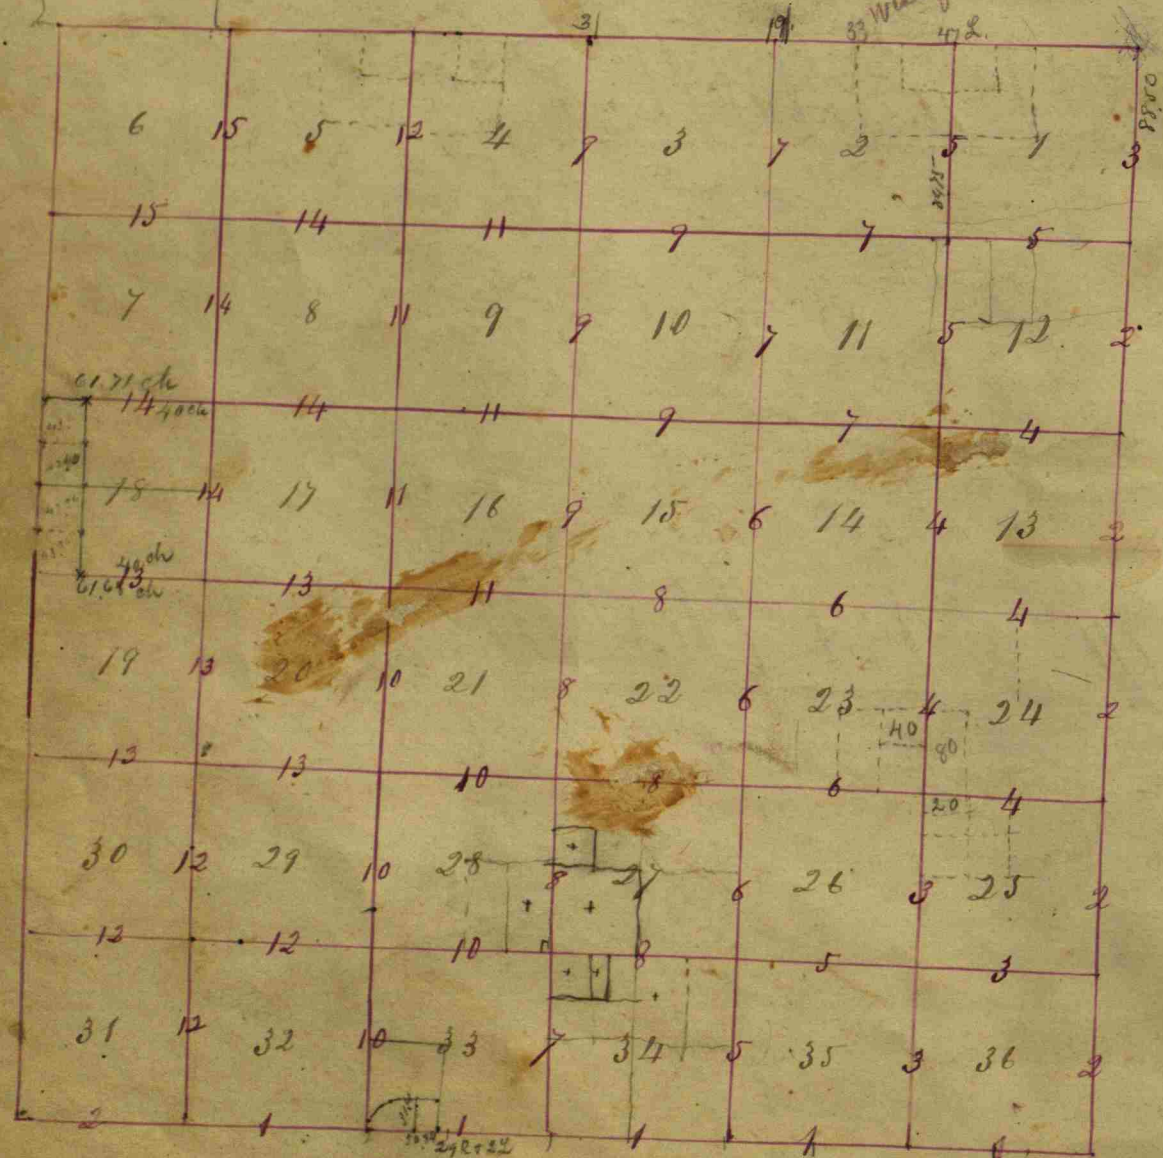 3 19 33 47 L.
8850
6 15 5 12 4 9 3 7 2 5 1 3
15 14 11 9 7 5
7 14 8 11 9 9 10 7 11 5 12 2
61.71 ch
14 40 ch 14 11 9 7 4
40
18 14 17 11 16 9 15 6 14 4 13 2
40 ch
13 13 11 8 6 4
ch
19 13 20 10 21 8 22 6 23 4 24 2
40 80
13 13 10 8 6 4
20
30 12 29 10 28 8 27 6 26 3 25 2
12 12 10 8 5 3
31 12 32 10 33 7 34 5 35 3 36 2
2 1 1 1 1 1